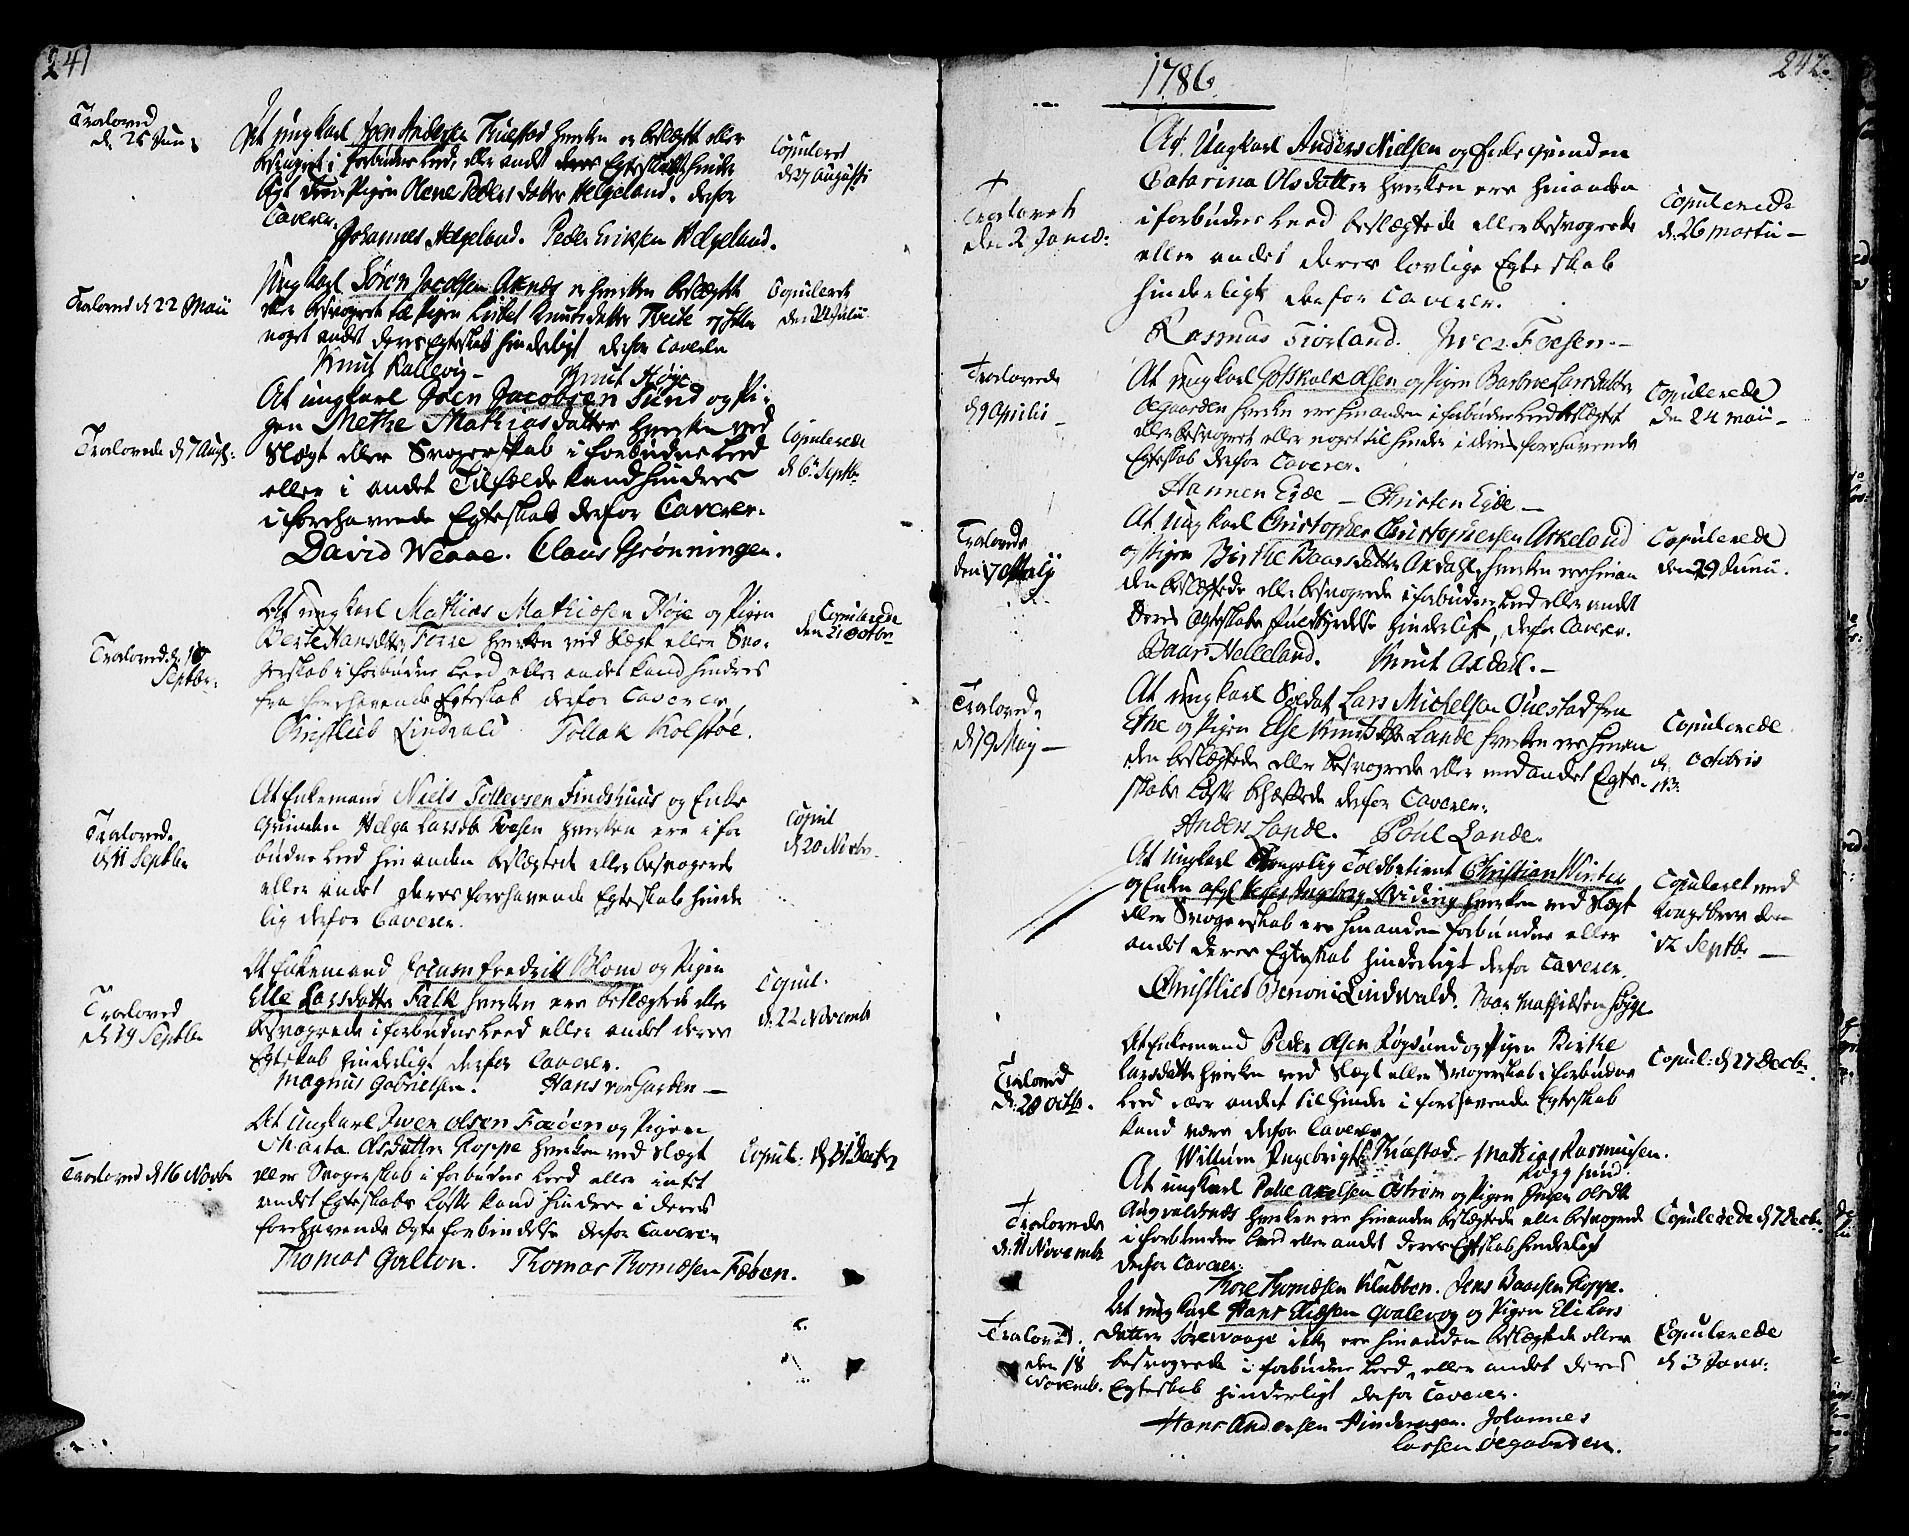 241
Troloved
d. 25 Juni
At ungkarl Joen Andersen Tuestad hverken er beslægtt eller
besvogret i forbudne Leed, eller andet deres Egteskab hinder
ligt Pigen Olene Peders datter Helgeland. derfor
Caverer.
Johannes Helgeland. Peder Eriksen Helgeland.
Copuleret
den 27 Augusti
Troloved d 22 Maii
Ungkarl Søren Jacobsen Aknes er hverken beslægtet
eller besvogret til Pigen Lisbet Knuts datter Tveit og eller
noget andet deres Egteskab hinderligt derfor Caverer
Knut Kallevig - Knut Høie
Copuleret
Trolovede d 7 Augs:
At ungkarl Joen Jacobsen Sund og Pi-
gen Methe Mathias datter hverken ved
Slægt eller Svogerskab i forbudne Leed
eller i andet Tilfælde kand hindres
i forehavende Egteskab derfor Caverer.
David Wenne. Claus Grønningen.
Copulerede
d 6: Septb:
Trolovede d. 18
Septbr:
At ungkarl Mathias Mathiesen Høje og Pigen
Berte Hansdtr Torre hverken ved Slægt eller Svo-
gerskab i forbudne Leed eller andet kand hindres
fra forehavende Egteskab derfor Caverer
Christlieb Lindvald Tollak Kolstøe.
Copulerede
den 21 Octbr
Trolovede
d 11 Septbr
At Enkemand Niels Tollevsen Findshuus og Enke
Qvinden Helga Larsdtr Foesen hverken ere i for
budne Leed hinanden beslægtede eller besvogrede
eller andet deres forehavende Egteskab hinder
lig derfor Caverer.
Copul
d 20 Novbr.
Troloved
d 29 Septbr
At Enkemand Jochum Fredrik Blom og Pigen
Elle Larsdatter Falk hverken ere beslægtede eller
besvogrede i forbudne Leed eller andet deres
Egteskab hinderligt derfor Caverer.
Magnus Gabrielsen. Hans von Garden -
Copul.
d. 22 Novemb
Trolovede d 16 Novbr
At Ungkarl Iwer Olsen Farøen og Pigen
Marta Olsdatter Roppe hverken ved Slægt
eller Svogerskab i forbudne Leed eller intet
andet Egteskabs Løfte kand hindres i deres
forehavende Egteforbindelse derfor Caverer
Thomas Galton. Thomas Thomæsen Fæøen.
Copul: d 31 Decbr
242.
1786.
Trolovet
den 2 Janu:
At. Ungkarl Anders Nielsen og Enke Qvinden
Catarina Olsdatter hverken ere hinanden
i forbudne Leed beslægtede eller besvogrede
eller andet deres lovlige Egteskab
hinderligt derfor Caverer.
Rasmus Fiorland. Iwer Foesen. -
Copulerede
d. 26 Martii -
Trolovede
d 9 Aprilis
At ungkarl Gotskalk Olsen og Pigen Barbroe Larsdatter
Øegaarden hverken ere hinanden i forbudne Leed beslægtet
eller besvogret eller noget til hinder i deres forehavende
Egteskab derfor Caverer.
Hannen Eide - Christen Eide -
Copulerede
den 24 Maii -
Trolovede
At ungkarl Christopher Christophersen Askeland
og Pigen Birthe Baarsdatter Axdahl, hverken ere hinan
den beslægtede eller besvogrede i forbudne Leed eller andet
deres Egteskabs Fuldbyrdelse hinderligt, derfor Caverer.
Baar Helleland. Knut Axdal. -
Copulerede
den 29 Junii.
Trolovede
d 9 Maij -
At ungkarl Soldat Lars Michelsen Ouestad fra
Etne og Pigen Else Knutsdtr Lande hverken ere hinan
den beslægtede eller besvogrede eller med andet Egte-
skabs Løfte behæftede derfor Caverer.
Anders Lande. Poul Lande.
Copulerede
d. 13: octobris
At Ungkarl Kongelig Toldbetient Christian Winter
og Enken afgl. Ingeborg hverken ved Slægt
eller Svogerskab ere hinanden forbundne eller
andet deres Egteskab hinderligt derfor Caverer.
Christlieb Benoni Lindwald. Baar Mathiæsen Høyge
Copuleret ved
Kongebrev den
12 Septbr -
Troloved
d: 20 Octbr.
At Enkemand Peder Olsen Røgsund og Pigen Birthe
Larsdatter hverken ved Slægt eller Svogerskab i forbudne
Leed eller andet til hinder i forehavende Egteskab
kand være derfor Caverer
Willum Ingebrigts. Tuestad - Mathias Rasmusen.
Røggsund
Copul: d 27 Decbr
Trolovede
d. 11 Novembr
At ungkarl Polle Axelsen Østrem og Pigen Ingen Olsdtr
Augvaldsnæs hverken ere hinanden beslægtede eller besvogrede
i forbudne Leed eller andet deres Egteskab hinderligt
derfor Caverer:
Thore Thomæsen Klubben. Jens Baarsen Roppe.
Copulerede d 7 Decbr
Trolovede
den 18
Novemb.
At ungkarl Hans Eliæsen Qvalevog og Pigen Eli Lars
datter Sørevaage ikke ere hinanden beslægtede eller
besvogrede i forbudne Leed, eller andet deres
Egteskab hinderligt derfor Caverer.
Hans Andersen Johannes
Larsen Øegaarden.
Copulerede
d 3 Janu: